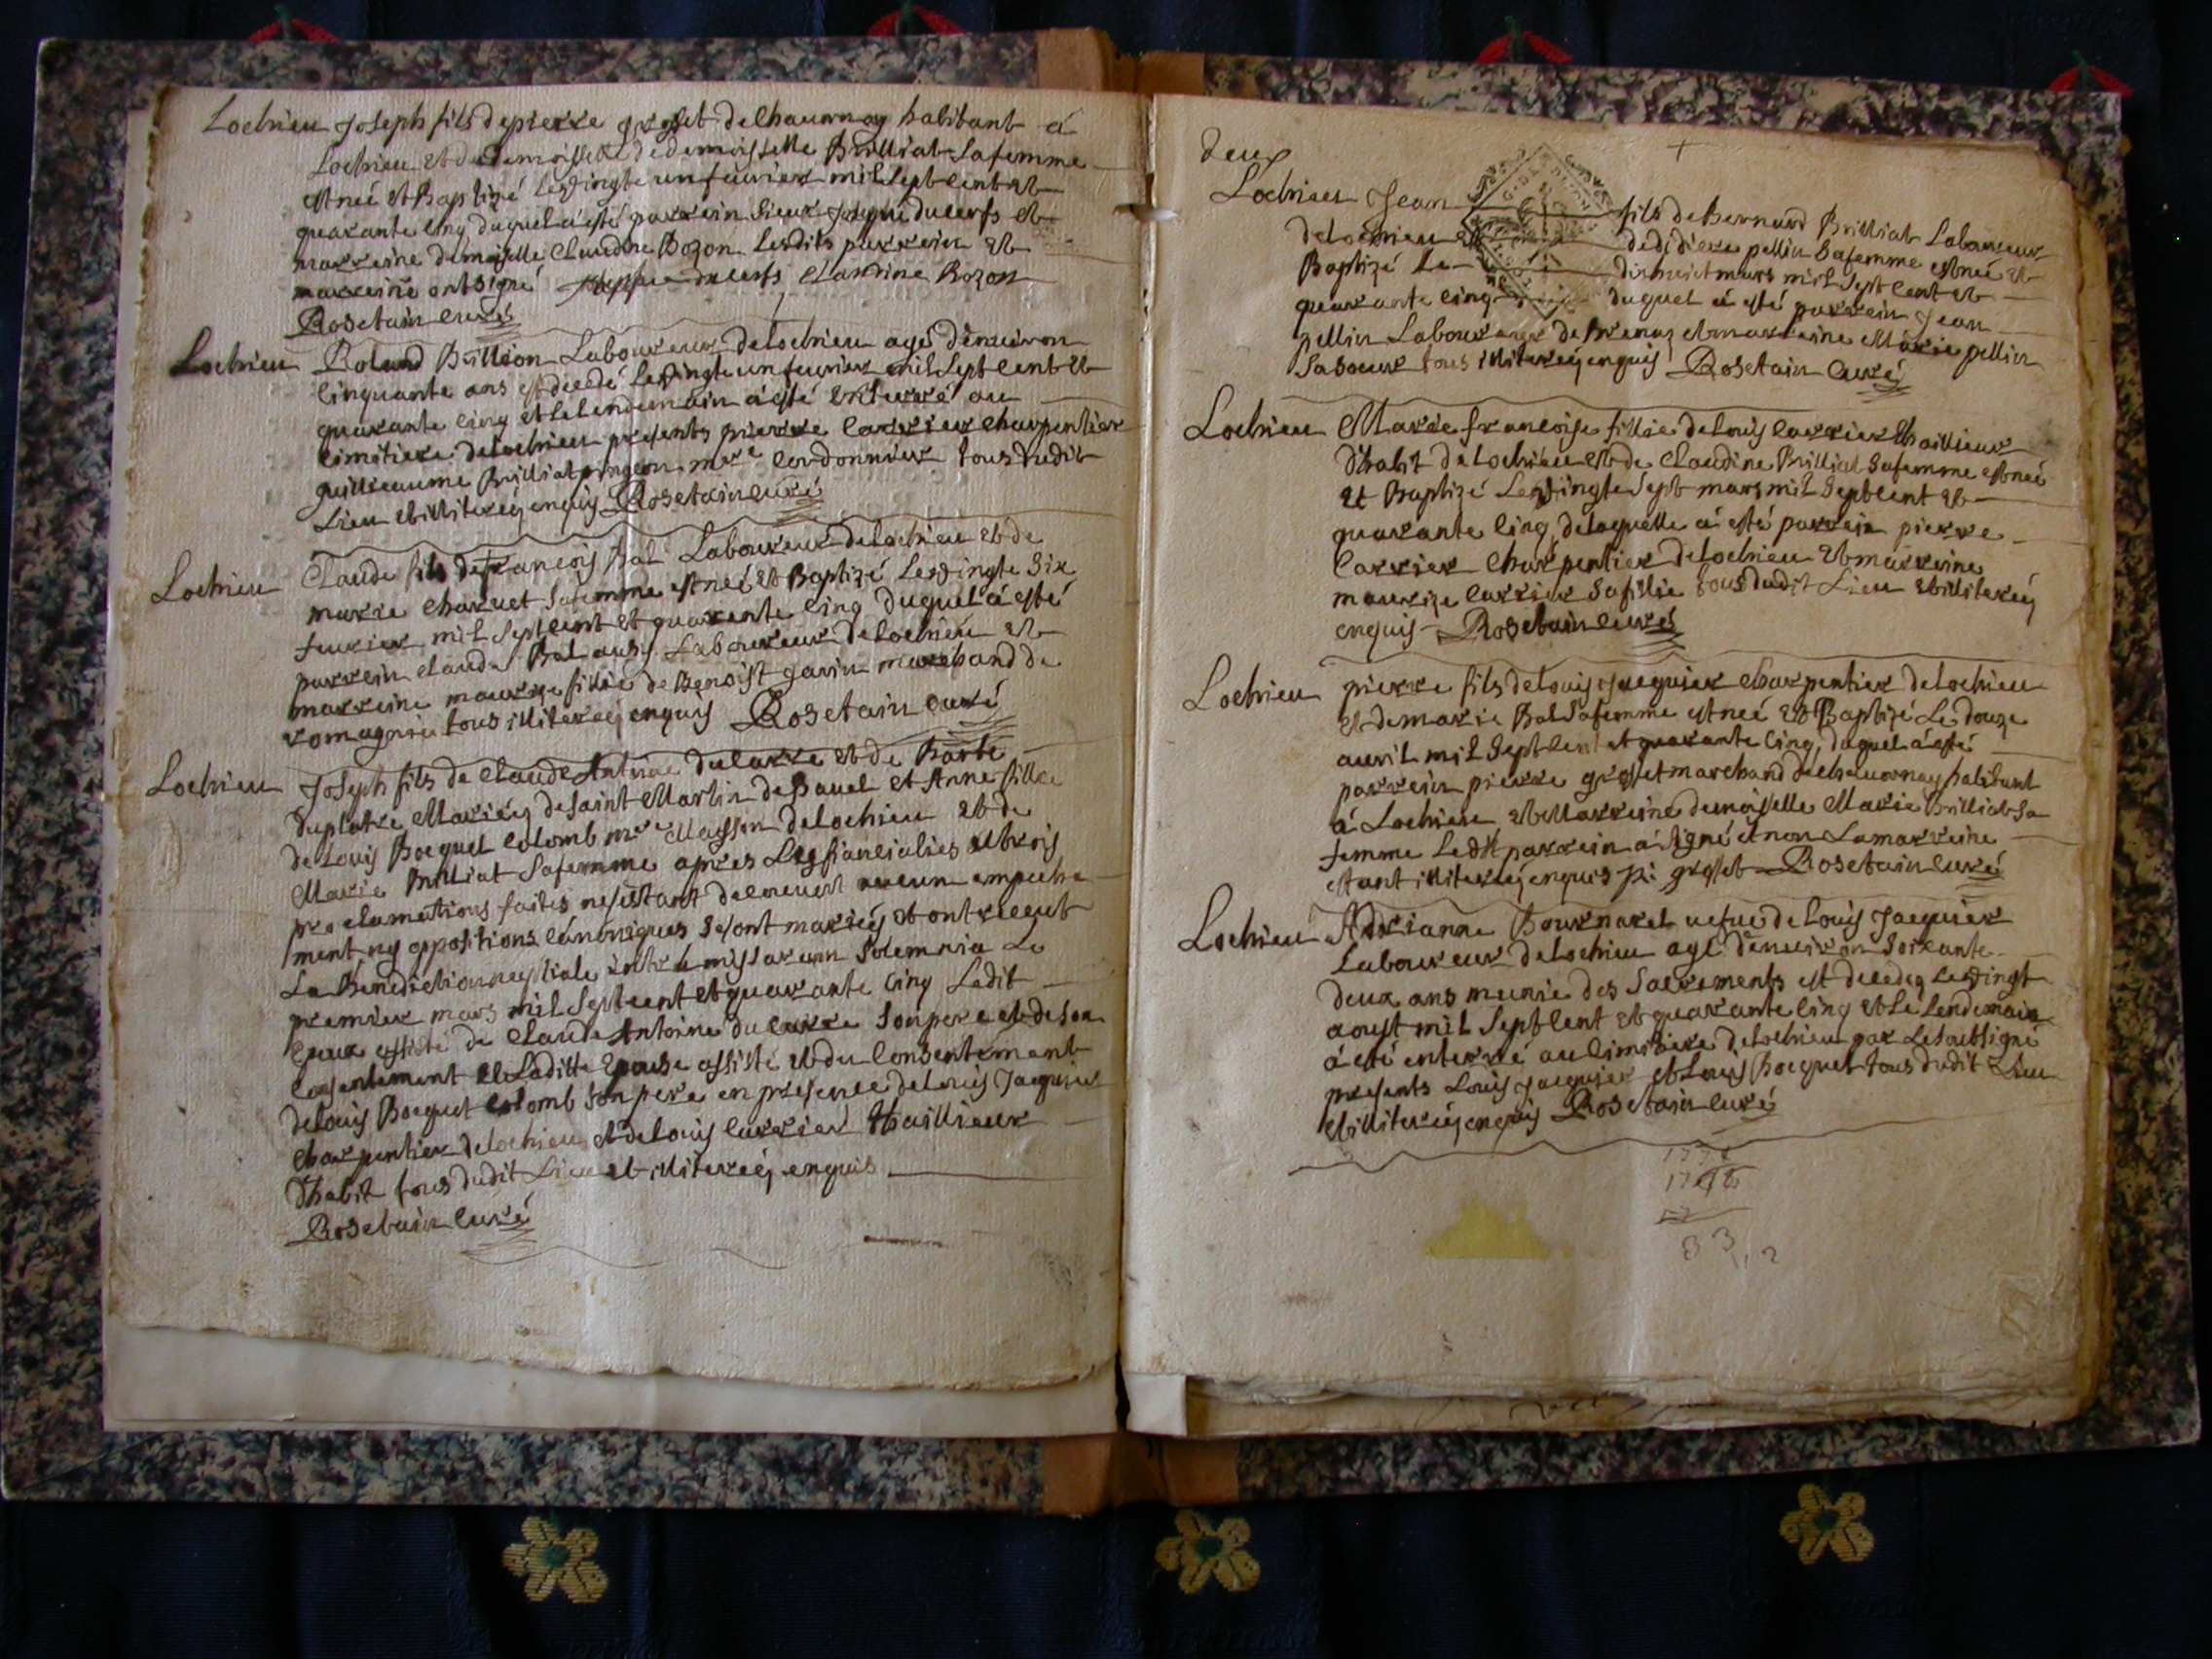 Lochieu Joseph fils de pierre grosset de Chauornay habitant á
Lochieu et de demoiselle Brilliat Sa femme
est neé et Baptizé le vingte un feurier mil Sept Cent et
quarante Cinq duquel á esté parrein Sieur Joseph ducerfs et
marreine demoiselle Claudine Bozon Lesdits parrein et
marreine ont signé ducerfs Claudine Bozon
Rosetain Curé
Lochieu Roland Brillion Laboureur de Lochieu agé d'enuiron
Cinquante ans est decedé Le vingte un feurier mil Sept Cent et
quarante Cinq et le lendemain á esté enterré au
Cimitiere de Lochieu presents pierre Carrier Charpentier
guilleaume Brilliat pingeon mre Cordonnier tous dudit
Lieu et illitereéj enquis Rosetain Curé
Lochieu Claude fils de francois Bal Laboureur de Lochieu et de
marie Charuet Sa femme est neé et Baptizé Le vingte Six
feurier mil Sept Cent et quarante Cinq duquel á esté
parrein Claude Bal aussy Laboureur de Lochieu et
marreine maurize fillie de Benoist gavin marchand de
romagnieu tous illitereéj enquis Rosetain Curé
Lochieu Joseph fils de Claude Antoine ducarre et de Barbe
duplatre Mariéj de Saint Martin de Bauel et Anne fillie
de Louis Bocquet Colomb mre Masson de Lochieu et de
Marie Brilliat Sa femme apres Les fiancialies et trois
proclamations faites nesestant decouuert aucun empeche
ment ny oppositions Canoniques Se sont mariéj et ont receut
La Benediction nuptiale intra missarum Solemnia Le
premier mars mil Sept Cent et quarante Cinq Ledit
Epoux assisté de Claude Antoine du Carre Son pere et de Son
Consentement et Laditte Epouse assisté et du Consentement
de Louis Bocquet Colomb Son pere en presence de Louis Jacquier
Charpentier de Lochieu et de Louis Carrier thaillieur
d'habit tous dudit Lieu et illitereéj enquis
Rosetain Curé
deux
Lochieu Jean fils de Bernard Brilliat Laboureur
de Lochieu et de didiere pellin Sa femme est neé et
Baptizé Le dixhuict mars mil Sept Cent et
quarante Cinq duquel á esté parrein Jean
pellin Laboureur de Brenaz et marreine Marie pellin
Sa Soeur tous illitereéj enquis Rosetain Curé
Lochieu Marie francoise fillie de Louis Carrier thaillieur
d'habit de Lochieu et de Claudine Brilliat Sa femme est neé
et Baptizé Le vingte Sept mars mil Sept Cent et
quarante Cinq, de laquelle á esté parrein pierre
Carrier Charpentier de Lochieu et marreine
maurize Carrier Sa fillie tous dudit Lieu et illitereéj
enquis Rosetain Curé
Lochieu pierre fils de Louis Jacquier Charpentier de Lochieu
et de marie Bal Sa femme est neé et Baptizé Le douze
auril mil Sept Cent et quarante Cinq, duquel á esté
parrein pierre grosset marchand de Chauornay habitant
á Lochieu et Marreine demoiselle Marie Brilliat Sa
femme Ledit parrein á Signé et non La marreine
estant illitereéj enquis p: grosset Rosetain Curé
Lochieu Adrianne Bournaret uefue de Louis Jacquier
Laboureur de Lochieu agé d'enuiron Soixante
deux ans munie des Sacrements est decedeq Le vingt
aoust mil Sept Cent et quarante Cinq et Le Lendemain
á eté enterré au Cimitiere de Lochieu par Le Soubsigné
presents Louis Jacquier et Louis Bocquet tous dudit Lieu
et illitereéj enquis Rosetain Curé